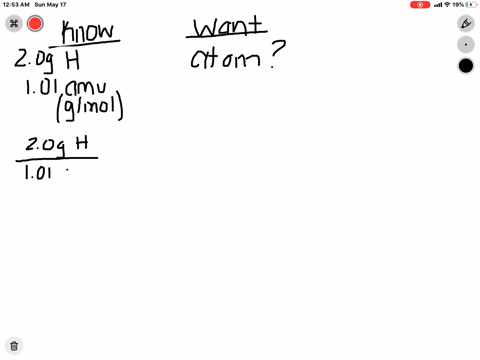 12:53 AM Sun May 17
19%
Know
Want
2.0g H
atom?
1.01 amu
(g/mol)
2.0g H
1.01